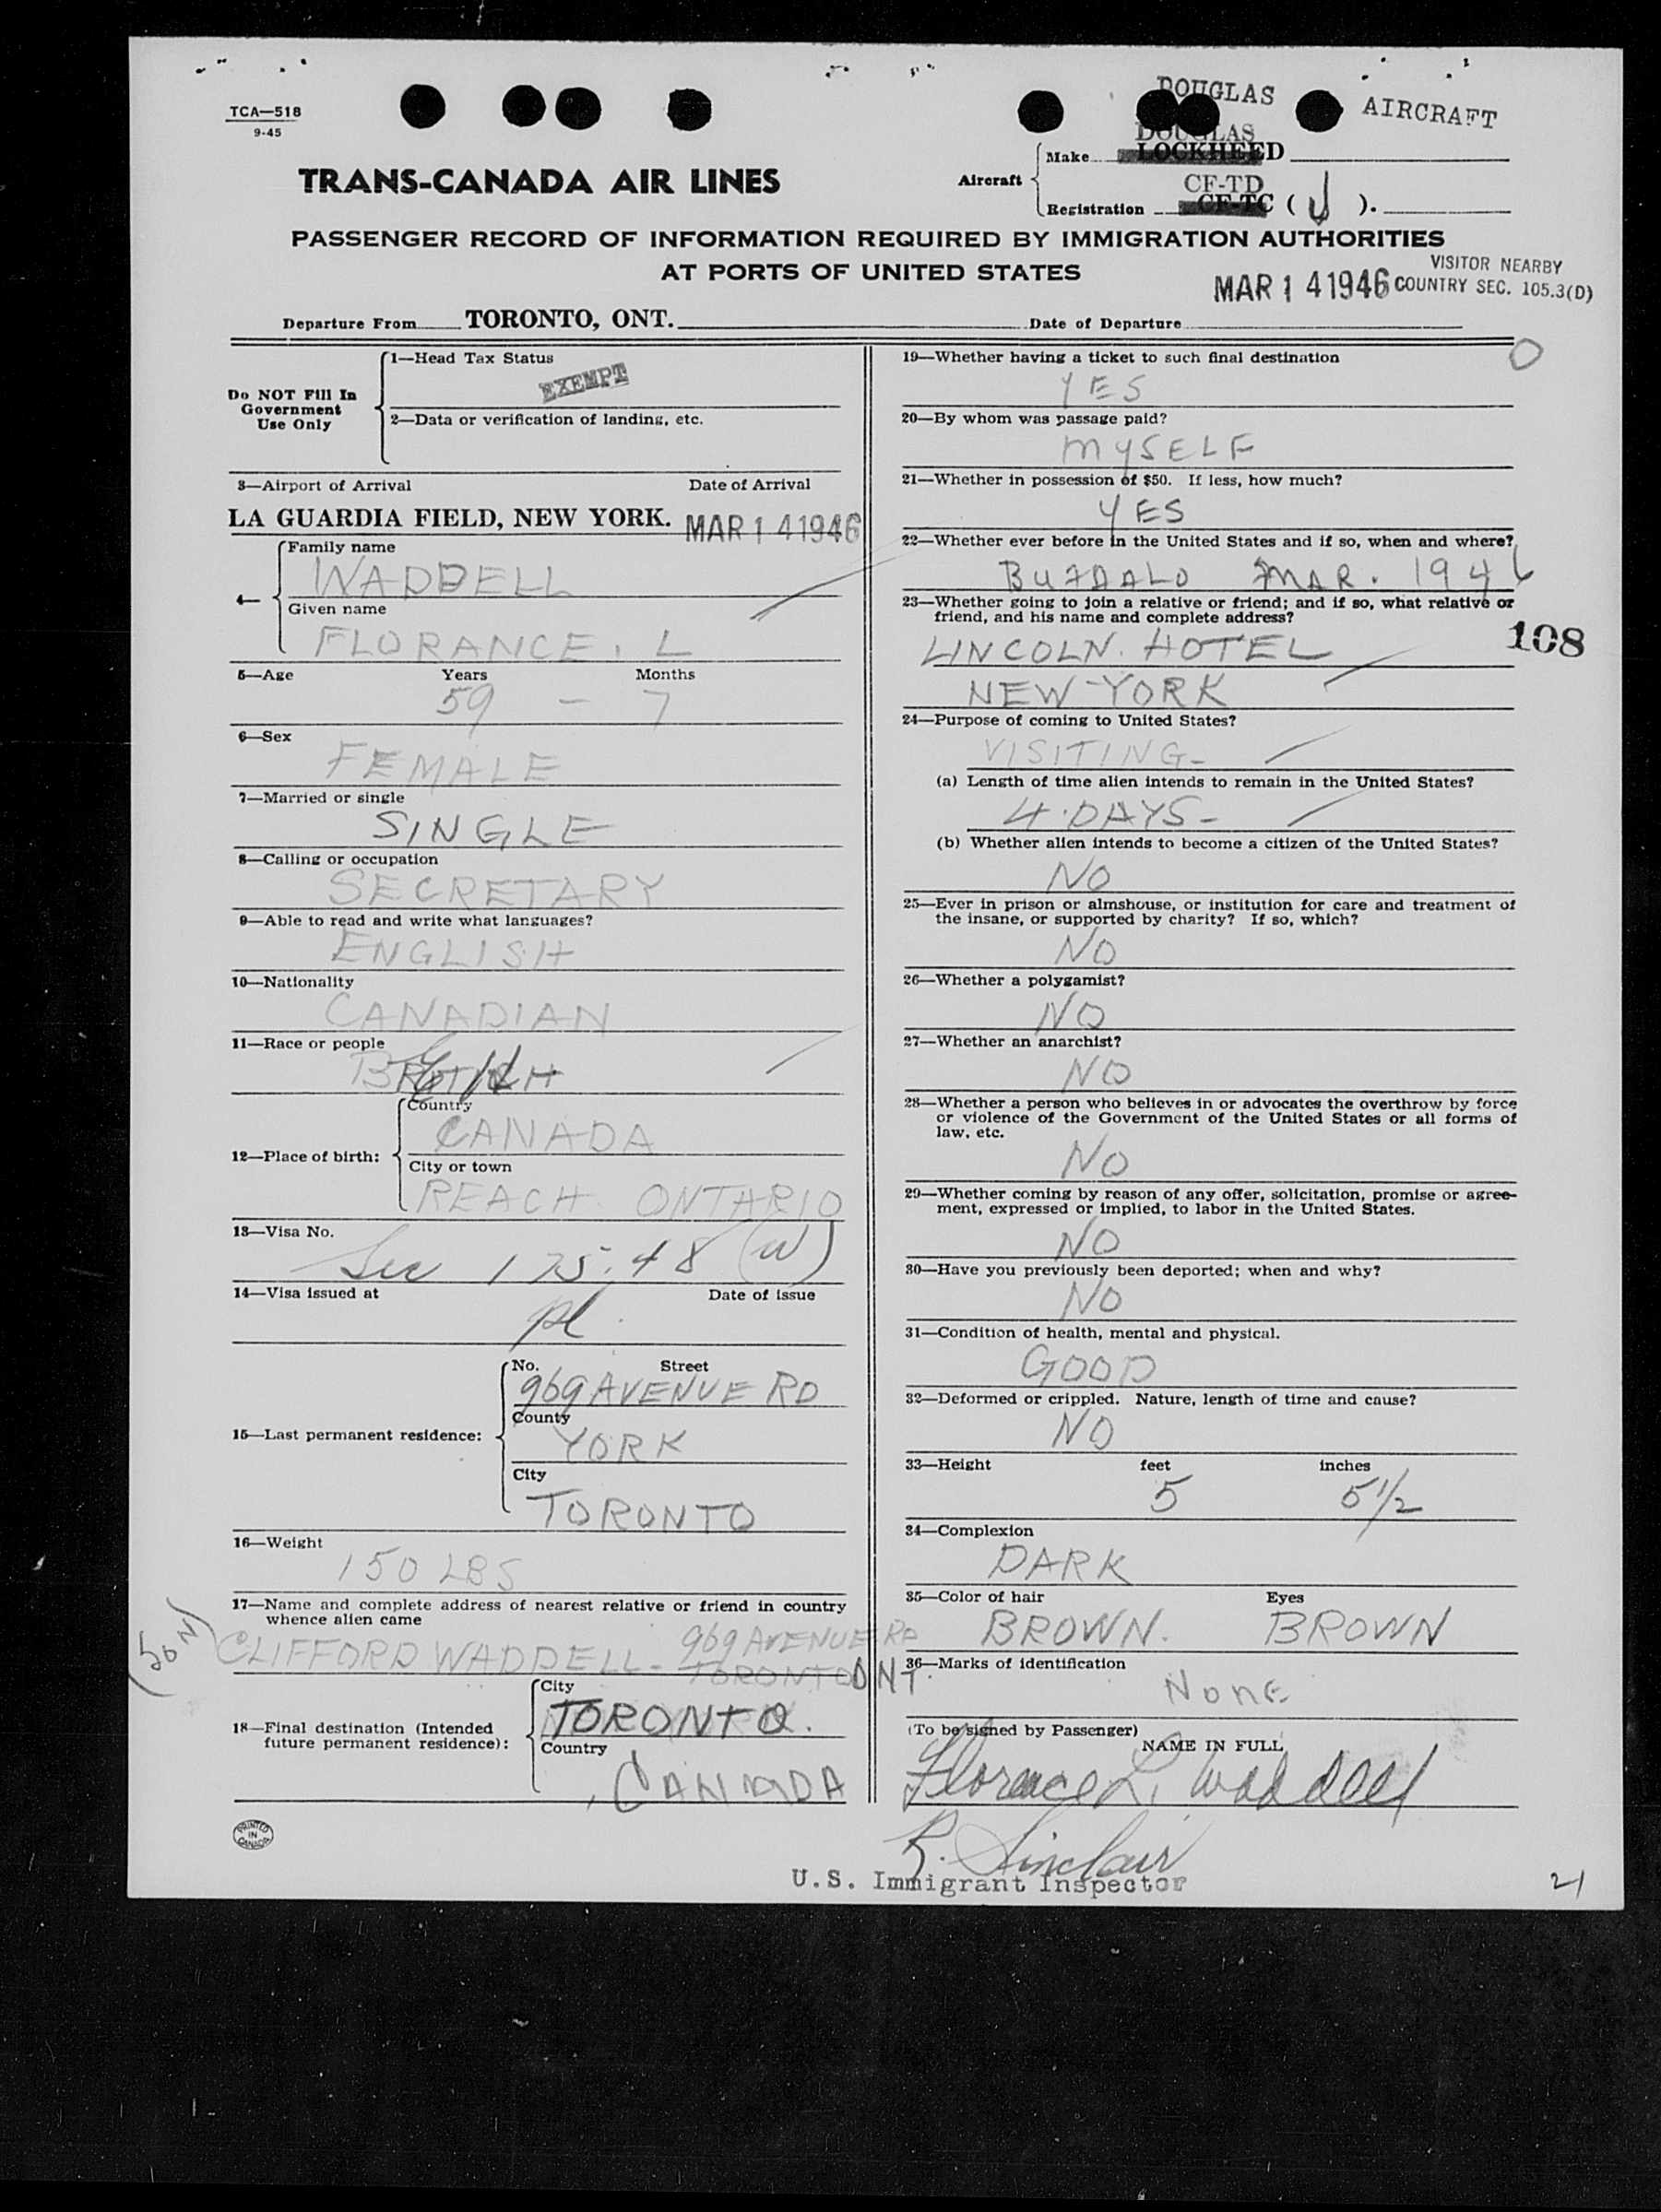 TCA—518
9-45
DOUGLAS AIRCRAFT
DOUGLAS
Make LOCKHEED
TRANS-CANADA AIR LINES
Aircraft
CF-TD
Registration CF-TC ( J ).
PASSENGER RECORD OF INFORMATION REQUIRED BY IMMIGRATION AUTHORITIES
AT PORTS OF UNITED STATES
VISITOR NEARBY
MAR 14 1946 COUNTRY SEC. 105.3(D)
Departure From TORONTO, ONT. Date of Departure
Do NOT Fill In
Government
Use Only
1—Head Tax Status
EXEMPT
2—Data or verification of landing, etc.
3—Airport of Arrival Date of Arrival
LA GUARDIA FIELD, NEW YORK. MAR 14 1946
4—
Family name
WADDELL
Given name
FLORANCE. L
5—Age Years Months
59 – 7
6—Sex
FEMALE
7—Married or single
SINGLE
8—Calling or occupation
SECRETARY
9—Able to read and write what languages?
ENGLISH
10—Nationality
CANADIAN
11—Race or people
BRITISH
12—Place of birth:
Country
CANADA
City or town
REACH ONTARIO
13—Visa No.
Sec 175.48 (W)
14—Visa issued at Date of issue
15—Last permanent residence:
No. Street
969 AVENUE RD
County
YORK
City
TORONTO
16—Weight
150 LBS
17—Name and complete address of nearest relative or friend in country
whence alien came
(SON)
CLIFFORD WADDELL - 969 AVENUE RD
TORONTO ONT.
18—Final destination (Intended
future permanent residence):
City
TORONTO.
Country
CANADA
PRINTED
IN
CANADA
19—Whether having a ticket to such final destination
YES
20—By whom was passage paid?
MYSELF
21—Whether in possession of $50. If less, how much?
YES
22—Whether ever before in the United States and if so, when and where?
BUFFALO MAR. 1946
23—Whether going to join a relative or friend; and if so, what relative or
friend, and his name and complete address?
108
LINCOLN. HOTEL
NEW-YORK
24—Purpose of coming to United States?
VISITING-
(a) Length of time alien intends to remain in the United States?
4.DAYS-
(b) Whether alien intends to become a citizen of the United States?
NO
25—Ever in prison or almshouse, or institution for care and treatment of
the insane, or supported by charity? If so, which?
NO
26—Whether a polygamist?
NO
27—Whether an anarchist?
NO
28—Whether a person who believes in or advocates the overthrow by force
or violence of the Government of the United States or all forms of
law, etc.
NO
29—Whether coming by reason of any offer, solicitation, promise or agree-
ment, expressed or implied, to labor in the United States.
NO
30—Have you previously been deported; when and why?
NO
31—Condition of health, mental and physical.
GOOD
32—Deformed or crippled. Nature, length of time and cause?
NO
33—Height feet inches
5 5 1/2
34—Complexion
DARK
35—Color of hair Eyes
BROWN. BROWN
36—Marks of identification
NONE
(To be signed by Passenger)
NAME IN FULL
Florence L. Waddell
R. Sinclair
U.S. Immigrant Inspector
21